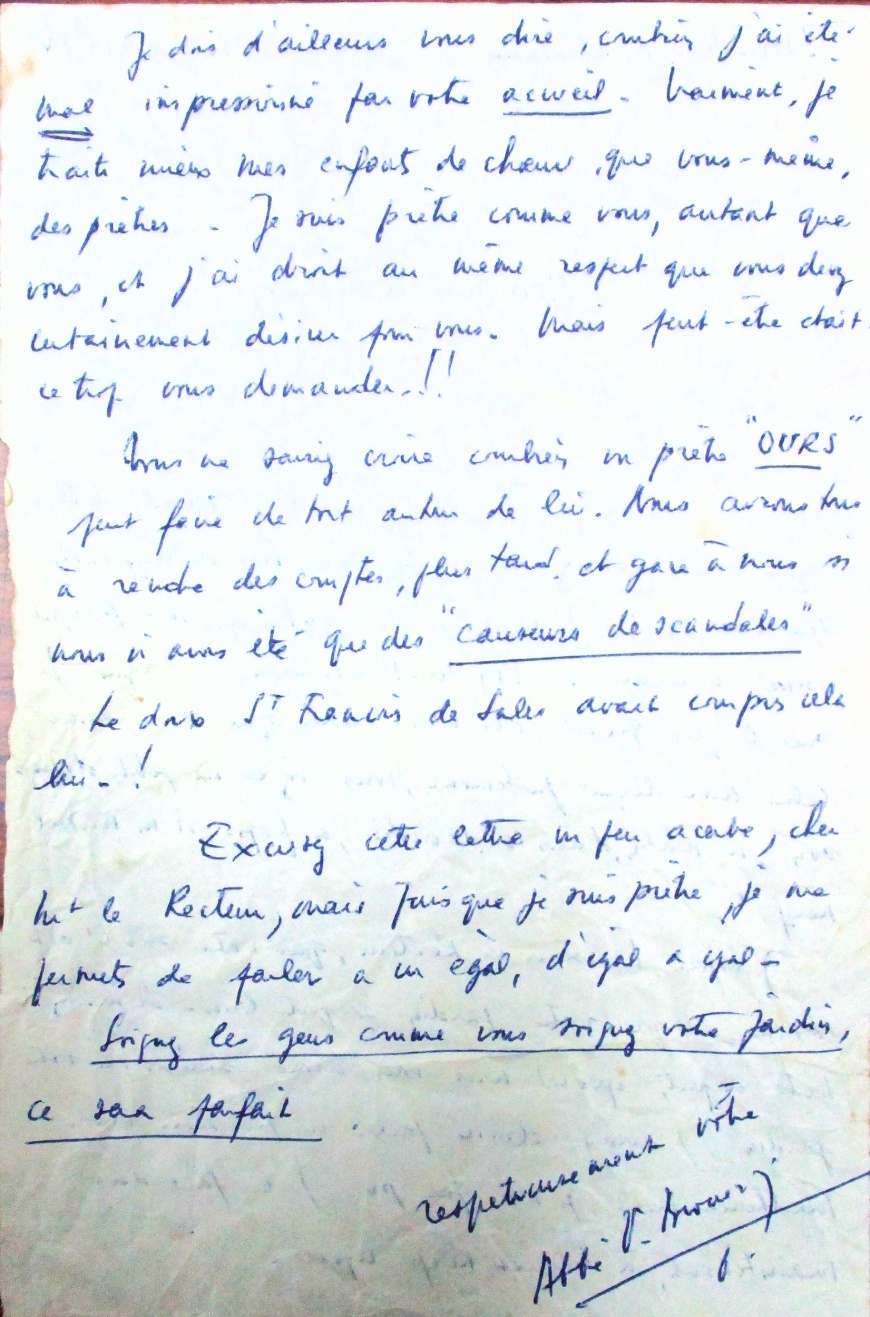 Je dois d'ailleurs vous dire, combien j'ai été
mal impressionné par votre accueil. Vraiment, je
traite mieux mes enfants de chœur, que vous-même,
des prêtres. Je suis prêtre comme vous, autant que
vous, et j'ai droit au même respect que vous devez
certainement désirer pour vous. Mais peut-être était-
ce trop vous demander..!!
Vous ne sauriez croire combien un prêtre "OURS"
peut faire de tort autour de lui. Nous aurons tous
à rendre des comptes, plus tard, et gare à nous si
nous n'avons été que des "causeurs de scandales"
Le doux St Francois de Sales avait compris cela
lui..!
Excusez cette lettre un peu acerbe, cher
Mr le Recteur, mais puisque je suis prêtre, je me
permets de parler à un égal, d'égal à égal -
Soignez les gens comme vous soignez votre jardin,
ce sera parfait.
respectueusement vôtre
Abbé